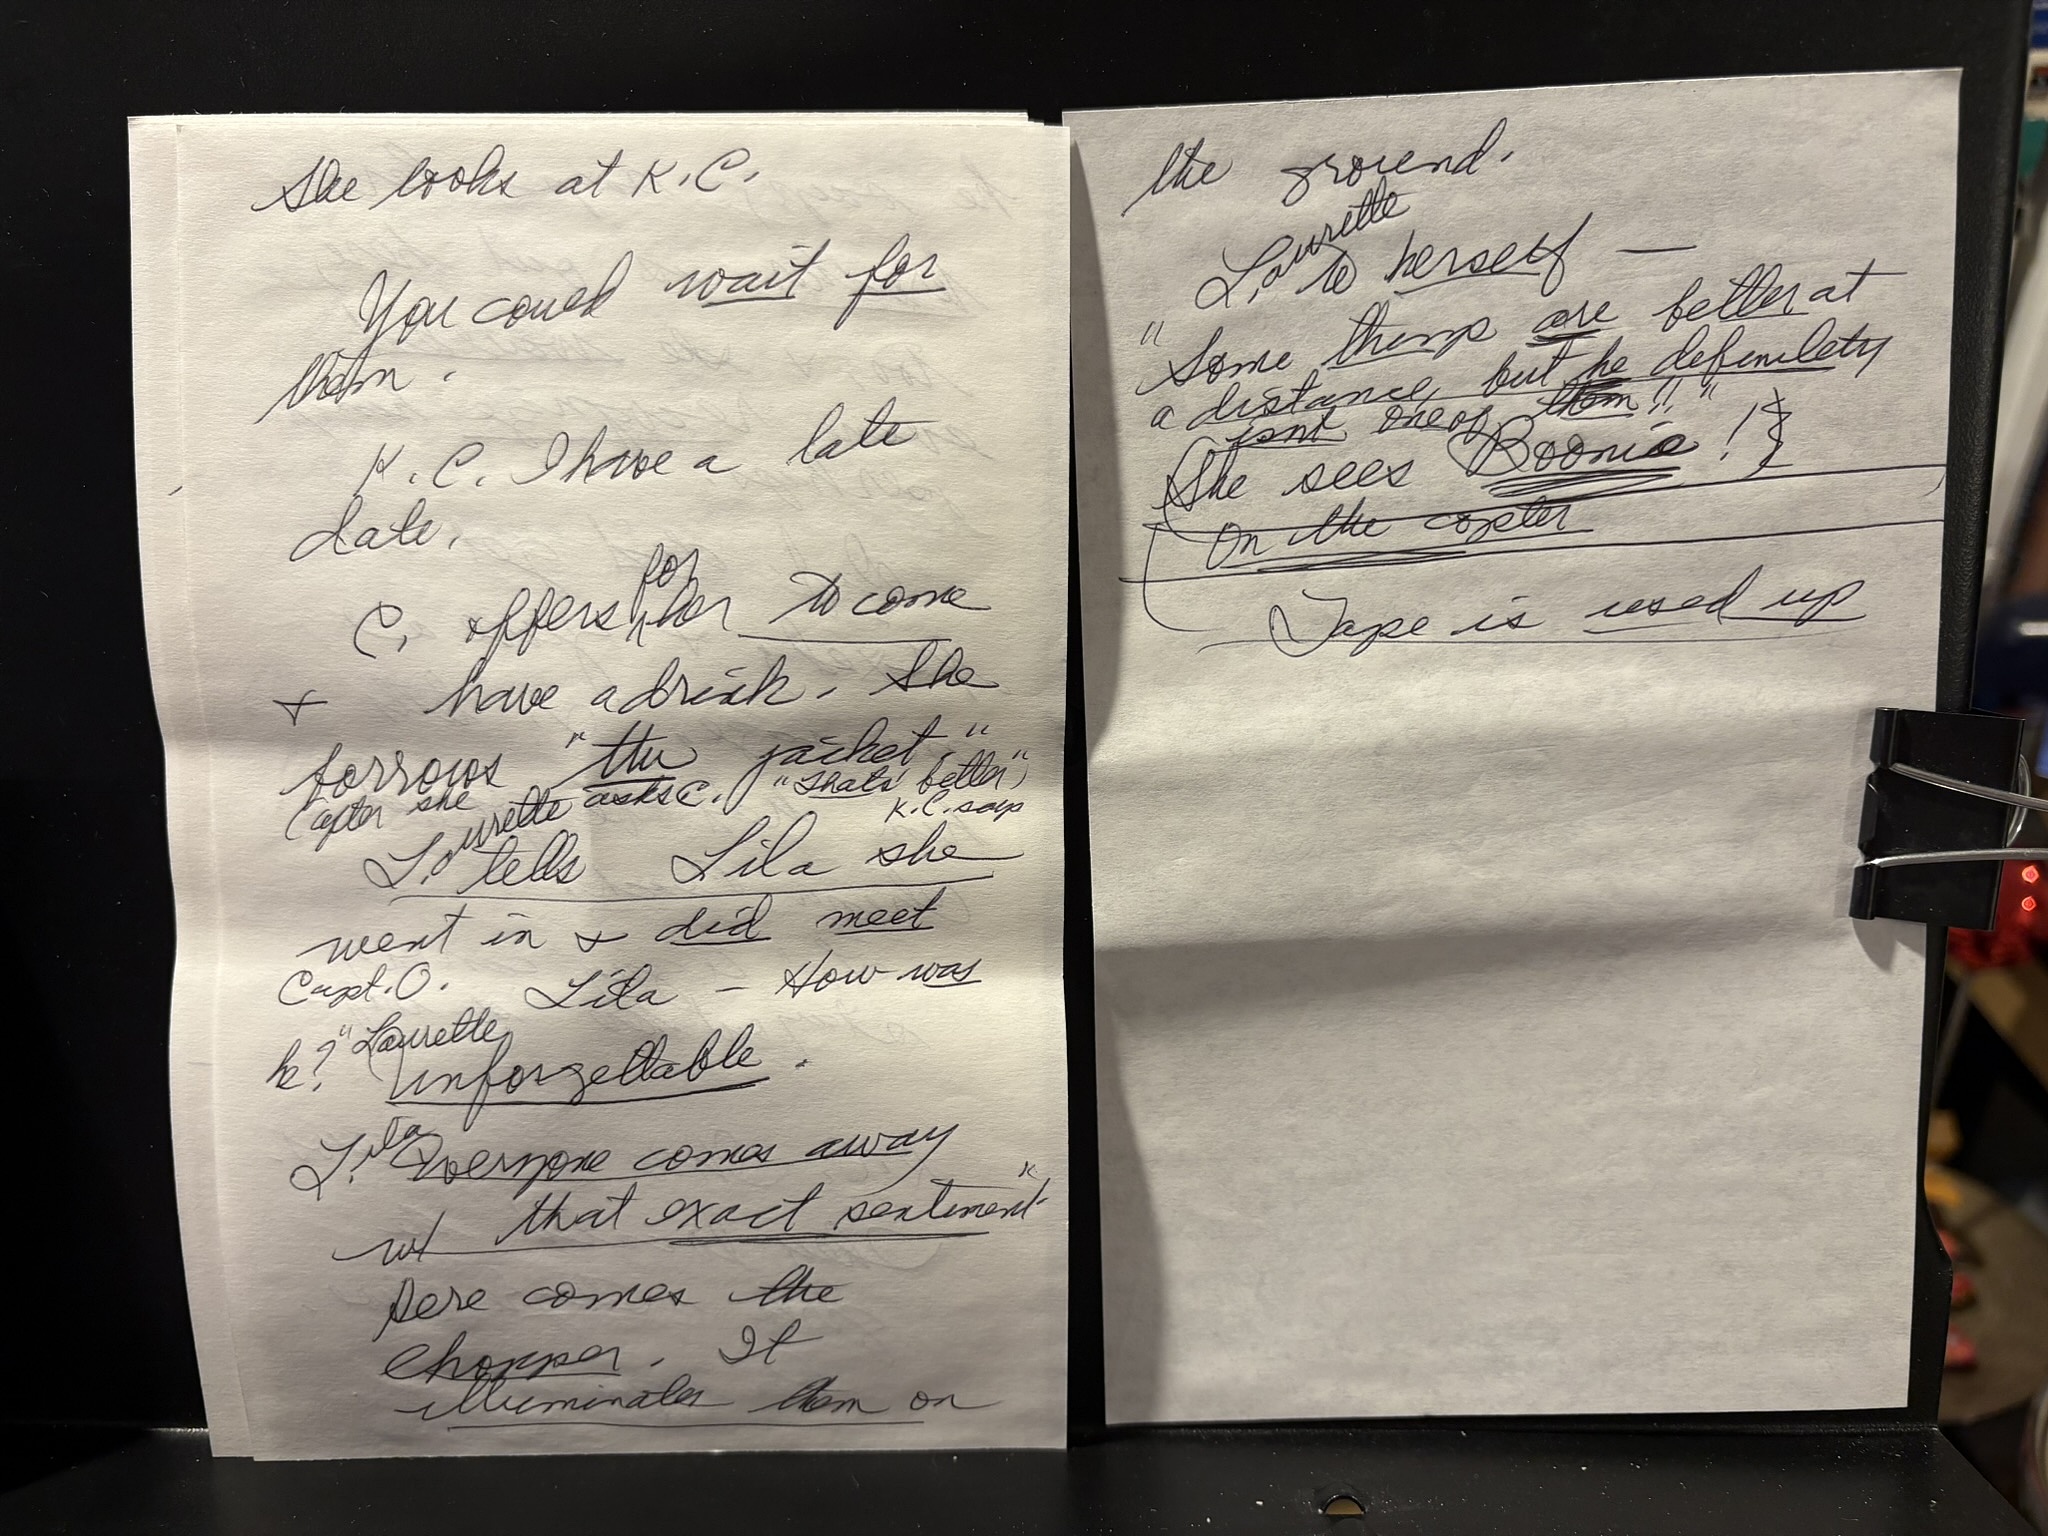 She looks at K.C.
You could wait for
them.
K.C. I have a late
date.
C. offers for her to come
+ have a drink. She
borrows "the jacket"
(after she asks C. "That's better")
K.C. says
Laurette tells Lila she
went in + did meet
Capt. O. Lila - How was
he?" Laurette
Unforgettable.
Lila Everyone comes away
w/ that exact sentiment"
Here comes the
chopper. It
illuminates them on
the ground.
Laurette to herself —
"Some things are better at
a distance, but he definitely
isn't one of them!!"
(She sees Boonie!)
On the copter
Tape is used up